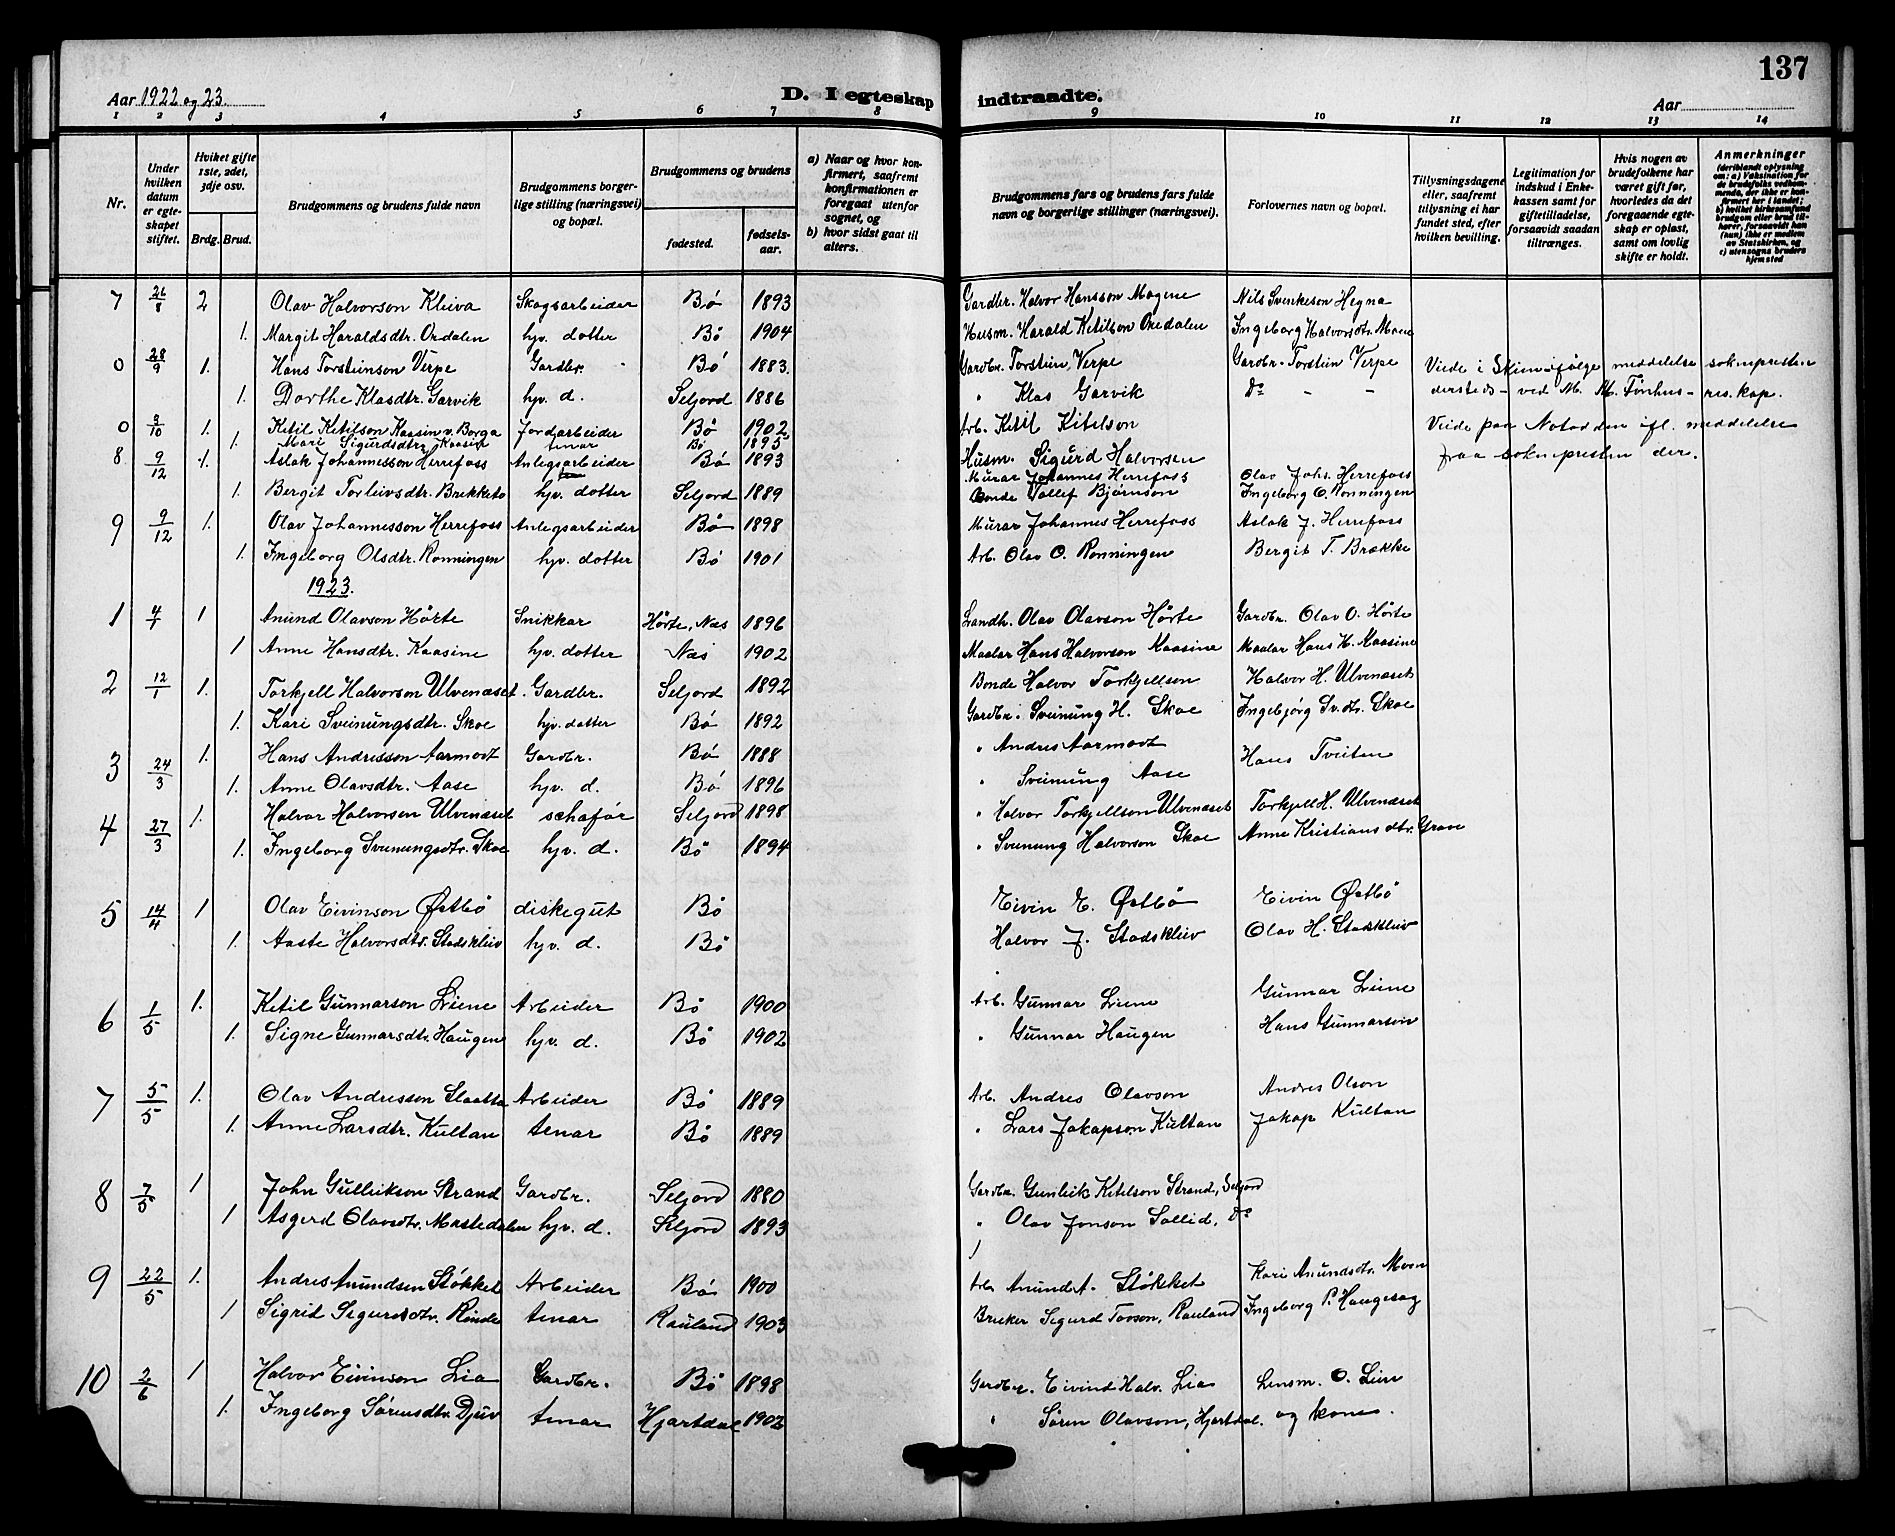 137
Aar 1922 og 23.
D. I egteskap indtraadte.
Aar
1 2 3 4 5 6 7 8 9 10 11 12 13 14
Nr.
Under hvilken datum er egteskapet stiftet.
Hvilket gifte 1ste, 2det, 3dje osv.
Brdg. Brud.
Brudgommens og brudens fulde navn
Brudgommens borgerlige stilling (næringsvei) og bopæl.
Brudgommens og brudens
fødested.
fødselsaar.
a) Naar og hvor konfirmert, saafremt konfirmationen er foregaat utenfor sognet, og
b) hvor sidst gaat til alters.
Brudgommens fars og brudens fars fulde navn og borgerlige stillinger (næringsvei).
Forlovernes navn og bopæl.
Tillysningsdagene eller, saafremt tillysning ei har fundet sted, efter hvilken bevilling.
Legitimation for indskud i Enkekassen samt for giftetilladelse, forsaavidt saadan tiltrænges.
Hvis nogen av brudefolkene har været gift før, hvorledes da det foregaaende egteskap er opløst, samt om lovlig skifte er holdt.
Anmerkninger (deriblandt oplysning om: a) Vaksination for de brudefolks vedkommende, der ikke er konfirmert her i landet; b) hvilket kirkesamfund brudgom eller brud tilhører, forsaavidt han (hun) ikke er medlem av Statskirken, og c) utensogns bruders hjemsted
7 26/8 2 Olav Halvorson Kleiva Skogsarbeider Bø 1893 Gardbr. Halvor Hansson Mogene Nils Svenkeson Hegna
1. Margit Haraldsdtr. Oxdalen hjv. dotter Bø 1904 Husm. Harald Ketilson Oxedalen Ingeborg Halvorsdtr. Moen
0 28/9 1. Hans Torsteinson Verpe Gardbr. Bø 1883. Gardbr. Torstein Verpe Gardbr. Torstein Verpe Viede i Skien ifølge meddelelse soknepresten
1. Dorthe Klasdtr. Garvik hjv. d. Seljord 1886 " Klas Garvik Do - - dersteds - ved M. M. Fønhus - res. kap.
0 3/10 1. Ketil Ketilson Kaasin v. Borga Jordarbeider Bø 1902 Arb. Ketil Kitelson Viede paa Notodden ifl. meddelelse
1. Mari Sigurdsdtr. Kaasin tenar Bø 1895 Husm. Sigurd Halvorsen fraa soknepresten der.
8 9/12 1. Aslak Johannesson Herrefoss Anlegsarbeider Bø 1893 Murar Johannes Herrefoss Olav Johs. Herrefoss
1. Bergit Torleivsdtr. Brekketo hjv. dotter Seljord 1889 Bonde Tollef Bjørnson Ingeborg O. Rønningen
9 9/12 1. Olav Johannesson Herrefoss Anlegsarbeider Bø 1898 Murar Johannes Herrefoss Aslak J. Herrefoss
1. Ingeborg Olsdtr. Rønningen hjv. dotter Bø 1901 Arb. Olav O. Rønningen Bergit T. Brække
1923.
1 4/1 1 Anund Olavson Hørte Snikkar Hørte, Næs 1896 Landh. Olav Olavson Hørte Gardbr. Olav O. Hørte
1 Anne Hansdtr. Kaasine hjv. dotter Næs 1902 Maalar Hans Halvorson Kaasine Maalar Hans H. Kaasine
2 12/1 1. Torkjell Halvorson Ulvenæset. Gardbr. Seljord 1892 Bonde Halvor Torkjellsen Halvor H. Ulvenæset
1. Kari Sveinungsdtr. Skoe hjv. dotter Bø 1892 Gardbr. Sveinung H. Skoe Ingebjørg Sv.dtr. Skoe
3 24/3 1. Hans Andresson Aarmodt Gardbr. Bø 1888 " Andres Aarmodt Hans Tveiten
1. Anne Olavsdtr. Aase hjv. d. Bø 1896 " Sveinung Aase
4 27/3 1. Halvor Halvorsen Ulvenæset schafør Seljord 1898 " Halvor Torkjellson Ulvenæset Torkjell H. Ulvenæset
1. Ingeborg Sveinungsdtr. Skoe hjv. d. Bø 1894 " Sveinung Halvorson Skoe Anne Kristiansdtr. Grave
5 14/4 1 Olav Eivinson Østbø diskegut Bø Eivin E. Østbø Eivin Østbø
1. Aaste Halvorsdtr. Stadskleiv hjv. d. Bø Halvor J. Stadskleiv Olav H. Stadskleiv
6 1/5 1. Ketil Gunnarson Liene Arbeider Bø 1900 Arb. Gunnar Liene Gunnar Liene
1. Signe Gunnarsdtr. Haugen hjv. d. Bø 1902 " Gunnar Haugen Hans Gunnarson
7 5/5 1. Olav Andresson Slaatta Arbeider Bø 1889 Arb. Andres Olavson Andres Olson
1. Anne Larsdtr. Kultan tenar Bø 1889 " Lars Jakapson Kultan Jakap Kultan
8 7/5 1 John Gullikson Strand Gardbr. Seljord 1880 Gardbr. Gunleik Ketelson Strand, Seljord
1 Asgerd Olavsdtr. Mastedalen hjv. d. Seljord 1893 " Olav Jonson Sollid, Do
9 22/5 1. Andres Anundsen Støkket Arbeider Bø 1900 Arb. Anund A. Støkket Kari Anundsdtr. Moen
1 Sigrid Segurdsdtr. Rinde tenar Rauland 1903 Bruker Segurd Tovson, Rauland Ingeborg P. Haugesag
10 2/6 1 Halvor Eivinson Lia Gardbr. Bø 1898 Gardbr. Eivind Halv. Lia Lensm. O. Lien
1. Ingeborg Sørensdtr. Djuv tenar Hjartdal 1902 " Søren Olavson, Hjartdal. og kone.